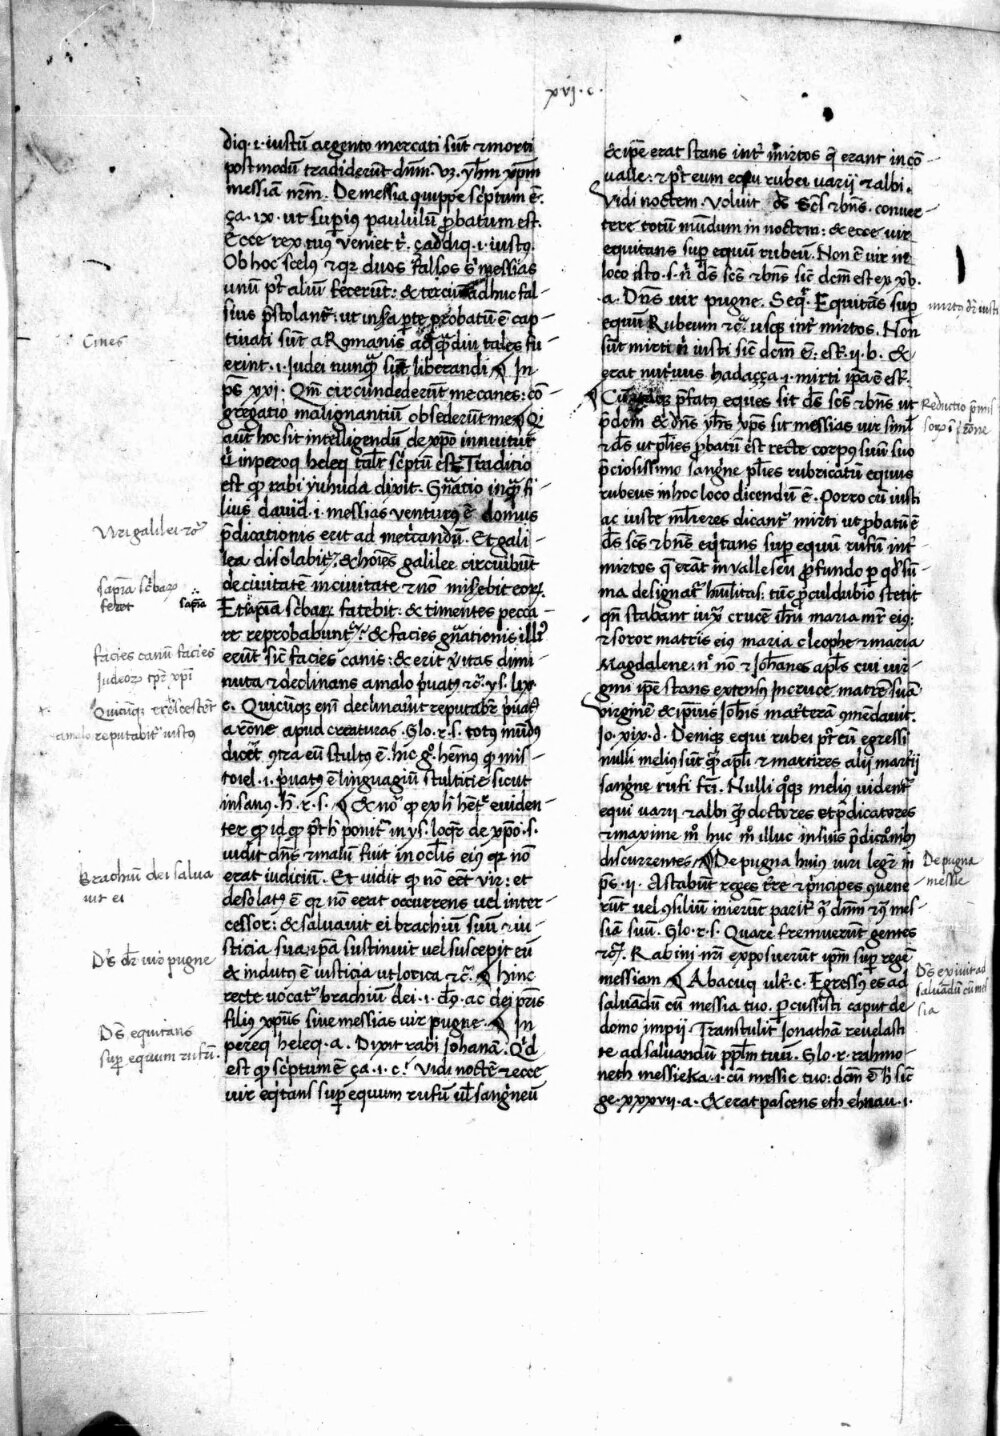 xvj. c.
diq. i. iustū argento mercati sūt ⁊ morti
postmodū tradiderūt dn̄m. vȝ. yh̄m xp̄m
messiā nr̄m. De messia quippe sc̓ptum ē.
ça. ix. ut supius paululū ꝓbatum est.
Ecce rex tuꝰ veniet t̓. çaddiq. i. iustꝰ.
Ob hoc scelꝰ ⁊ qꝛ duos falsos messias
unū pꝰt aliū fecerūt: & terciū adhuc fal
sius p̄stolant̓: ut infra ꝑte ꝓbatū ē cap
tiuati sūt a Romanis tales fu
erint. i. iudei nunqͣ sūt liberandi In
ps̄ xxi. Qm̄ circūndederūt me canes: cō
gregatio malignantiū obsederūt me
aut̄ hoc sit intelligendū de xp̄o innuitur
in pereq heleq talit̓ sc̓ptū est. Traditio
est ꝙ rabi yuhuda dixit. Gn̄atio inqͣ fi
lius dauid. i. messias venturꝰ ē domus
p̄dicationis erit ad met̓candū. Et gali
lea disolabit̓, & hoīes galilee circuibūt
de ciuitate in ciuitate ⁊ nō misebit̓ eoꝝ.
Et sapīa sc̓baꝝ fatebit: & timentes pecca
re reprobabunt̓: & facies gn̄ationis illiꝰ
erūt sic̄ facies canis: & erit v̓itas dimi
nuta ⁊ declinans a malo p̓uatꝰ ⁊c̓. ys. lix
c. Quicūqꝫ enī declinauit reputabit̓ p̓uatꝰ
a rōne apud creaturas. Glo. r. s. totꝰ mūdꝰ
dicet ꝯtra eū stultꝰ ē. hic gͦ hemꝰ ꝙ mis
tolel. i. p̓uatꝰ ē linguagiū stulticie sicut
insanꝰ. h̄. r. s. & no̓ ꝙ ex h̄ het̓ euiden
ter ꝙ id ꝙ pͥt h̄ ponit̓ in ys. loqͥt̓ de xp̄o. s.
uidit dn̄s ⁊ malū fuit in oculis eiꝰ qꝛ nō
erat iudiciū. Et uidit ꝙ nō eēt vir: et
desolatꝰ ē qꝛ nō erat occurrens uel inter
cessor: & saluauit ei brachiū suū ⁊ iu
sticia sua ip̄a sustinuit uel suscepit eū
& indutꝰ ē iusticia ut lorica ⁊c̓. hinc
recte uocat̓ brachiū dei. i. ac dei pr̄is
filiꝰ xp̄us siue messias uir pugne. In
pereq heleq. a. Dixit rabi iohanā. Qͥd
est ꝙ sc̓ptum ē ça. i. c. Vidi noctē ⁊ ecce
uir eqͥtans suꝑ equum rufū ul̄ sangneū
& ip̄e erat stans int̓ mirtos q̄ erant in cō
ualle: ⁊ pͥt eum equi rubei varij ⁊ albi.
Vidi noctem. voluit ds̄ sc̄s ⁊ bn̄s. conuer
tere totū mūdum in noctem: & ecce uir
equitans suꝑ equū rubeū. Non ē uir in
loco isto. s. n̓ ds̄ sc̄s ⁊ bn̄s sic̄ dcm̄ est ex xv.
a. Dn̄s uir pugne. Seqͥ. Equitās suꝑ
equū Rubeum ⁊c̓. usqꝫ int̓ mirtos. Non
sūt mirti n̓ iusti sic̄ dcm̄ ē: est̓. ij. b. &
erat nutriuus hadaçça. i. mirti ip̄a ē est̓.
p̄fatꝰ eques sit ds̄ sc̄s ⁊ bn̄s ut
p̄dcm̄ & dn̄s yh̄s xp̄s sit messias uir simł
⁊ ds̄ ut pl̄ies ꝓbatū est recte corpꝰ suū suo
p̄ciosissimo sangne pl̄ies rubricatū equus
rubeus in hoc loco dicendū ē. Porro cū iusti
ac iuste mlieres dicant̓ mirti ut ꝓbatū ē
ds̄ sc̄s ⁊ bn̄s eqͥtans suꝑ equū rufū int̓
mirtos q̄ erāt in valle seu ꝓfundo ꝑ qͦd sū
ma designat̓ hūilitas: tūc ꝓculdubio stetit
qn̄ stabant iuxͣ crucē ih̄u maria mr̄ eiꝰ:
⁊ soror matris eiꝰ maria cleophe ⁊ maria
Magdalene: nͦ nō ⁊ ioh̄anes apls̄ cui uir
gini ip̄e stans extensꝰ in cruce matrē suā
virginē & ip̄ius ioh̄is mat̓terā ꝯmēdauit.
Io. xix. d. Deniqꝫ equi rubei pͥt eū egressi
nulli meliꝰ sūt qͣ apl̄i ⁊ martires alij martij
sangne rufi fc̄i. Nulli qͦqꝫ melius uident̓
equi varij ⁊ albi qͣ doctores et p̄dicatores
⁊ maxime mͦ huc mͦ illuc in suis p̄dicatōibꝰ
discurrentes. De pugna huiꝰ uiri legit̓ in
ps̄. ij. Astabūt reges t̓re ⁊ pͥncipes ꝯuene
rūt uel ꝯsiliū inierūt parit̓ ꝯͣ dn̄m ⁊ ꝯͣ mes
siā suū. Glo. r. s. Quare fremuerūt gentes
⁊c̓. Rabini nr̄i exposuerūt ip̄m suꝑ regē
messiam. Abacuq ult̓. c. Egressꝰ es ad
saluādū cū messia tuo. ꝑcussisti caput de
domo impij. Transtulit ionathā reuelasti
te ad saluandū ppl̄m tuū. Glo. r. rahmo
neth messieka. i. cū messie tuo: dcm̄ ē h̄ sic̄
ge. xxxvij. a. & erat pascens eth ehnau. i.
Cines
Viri galilei ⁊c̓
sapīa sc̓baꝝ
fetet
sapīa
facies canū facies
iudeoꝝ tp̄r xp̄i
Quicūqꝫ
a malo reputabit̓ iustus
Brachiū dei salua
uit ei
Dn̄s dr̄ uir pugne
Ds̄ equitans
suꝑ equum rufū.
mirtꝰ dr̄ iusti
Reductio p̄mis
soꝝ
De pugna
messie
Dn̄s exiuit ad
saluādū cū mes
sia